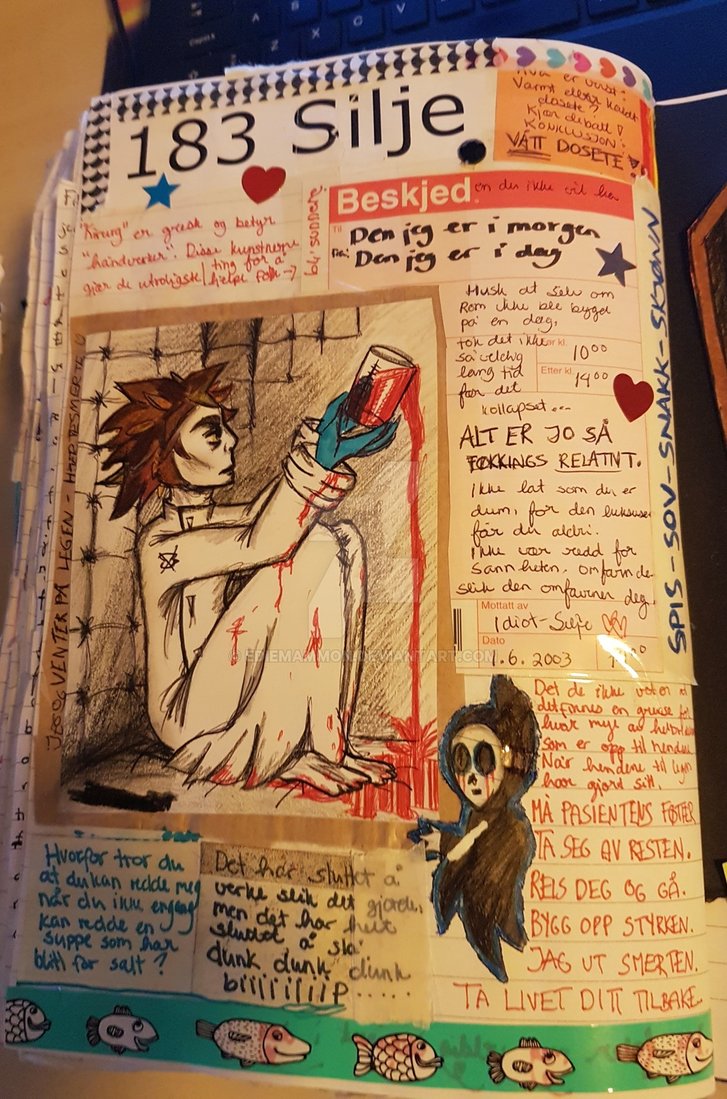 183 Silje
er verst:
Varmt eller kaldt
dosete?
Kjør debatt!
KONKLUSJON:
VÅTT DOSETE!
"Kirurg" er gresk og betyr
"håndverker". Disse kunstnerne
gjør de utroligste ting for å
hjelpe folk →
bli sunnere?
Beskjed en du ikke vil ha
Til Den jeg er i morgen
Fra: Den jeg er i dag
Husk at selv om
Rom ikke ble bygd
på en dag,
tok det ikke
så veldig
lang tid
før det
kollapset...
kl. 10⁰⁰
Etter kl. 14⁰⁰
ALT ER JO SÅ
FOKKINGS RELATIVT.
Ikke lat som du er
dum, for den luksusen
får du aldri.
Ikke vær redd for
sannheten, omfavn den
slik den omfavner deg.
Mottatt av
Idiot-Silje
Dato
1.6.2003
SPIS-SOV-SNAKK-SKJØNN
VENTER PÅ LEGEN -
EDIEMAMMON.DEVIANTART.COM
Det de ikke vet er at
det finnes en grense for
hvor mye av
som er opp til hendene.
Når hendene til legen
har gjort sitt,
MÅ PASIENTENS FØTTER
TA SEG AV RESTEN.
REIS DEG OG GÅ.
BYGG OPP STYRKEN.
JAG UT SMERTEN.
TA LIVET DITT TILBAKE.
Hvorfor tror du
at du kan redde meg
når du ikke engang
kan redde en
suppe som har
blitt for salt?
Det har sluttet å
verke slik det gjorde,
men det har helt
sluttet å slå
dunk dunk dunk
biiiiiiiip.....